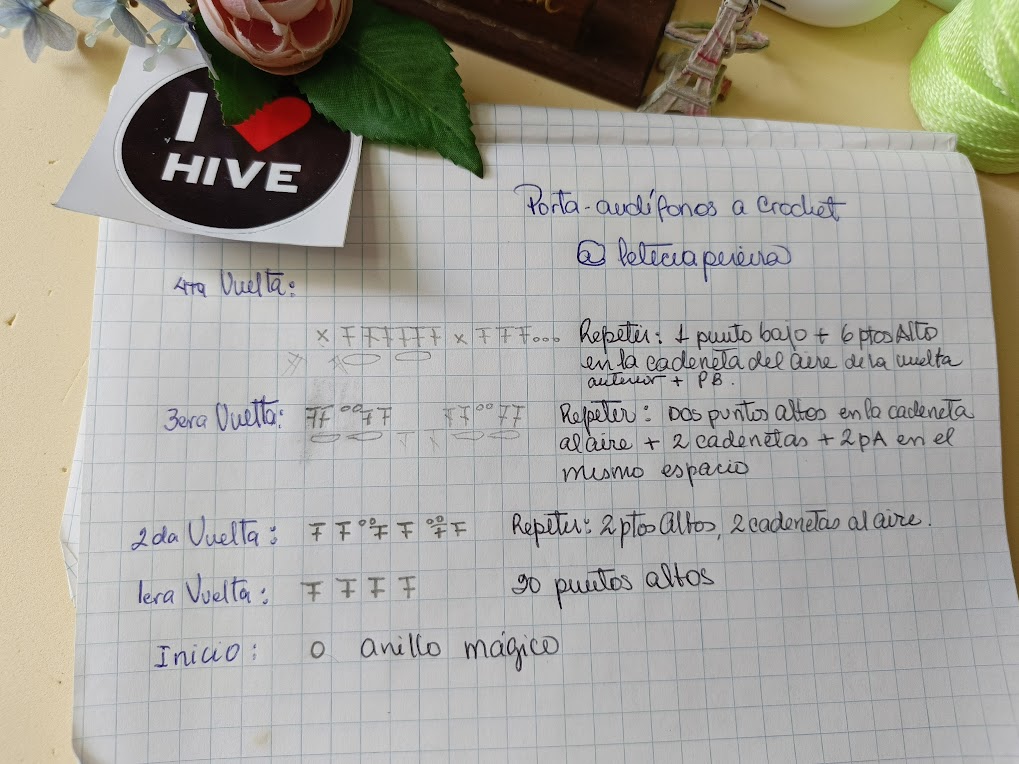 I ❤
HIVE
Porta-audífonos a Crochet
@leticiapereira
4ta Vuelta:
x F F F F F F x F F F...
Repetir: 1 punto bajo + 6 ptos Alto
en la cadeneta del aire de la vuelta
anterior + PB.
3era Vuelta: FF oo FF FF oo FF
Repetir: Dos puntos altos en la cadeneta
al aire + 2 cadenetas + 2pA en el
mismo espacio
2da Vuelta: F F oo F F oo F F Repetir: 2 ptos Altos, 2 cadenetas al aire.
1era Vuelta: F F F F 20 puntos altos
Inicio: O anillo mágico